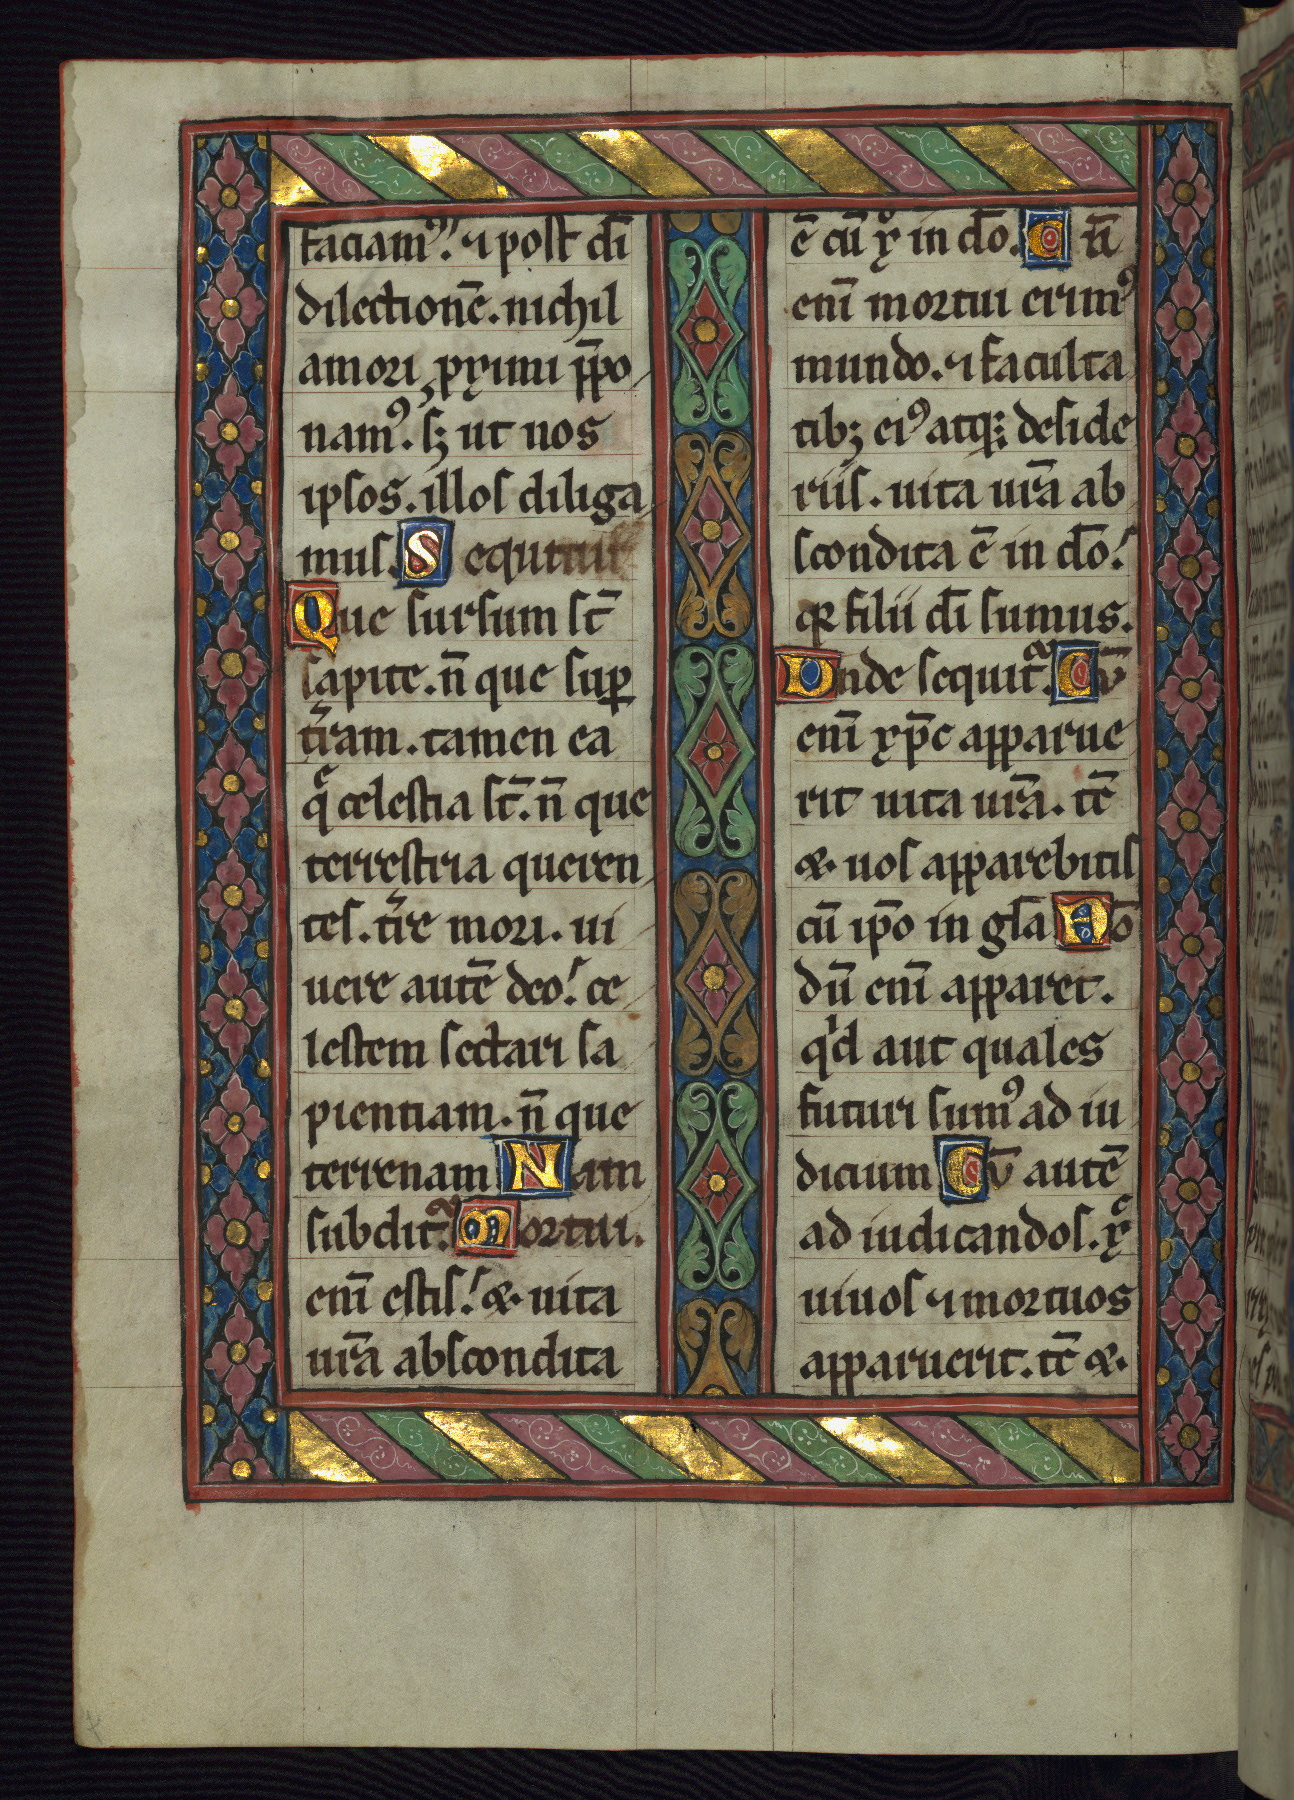 faciamꝰ. ⁊ post dī
dilectionē. nichil
amori ꝓximi p̄po
namꝰ. sꝫ ut nos
ipsos. illos diliga
mus. Sequitur
Que sursum st̄
sapite. n̄ que suꝑ
tr̄am. tamen ea
q̄ celestia st̄. n̄ que
terrestria queren
tes. tr̄e mori. ui
uere autē deo. ce
lestem sectari sa
pientiam. n̄ que
terrenam Nam
subdit᷑. Mortui.
enī estis. &. uita
ur̄a abscondita
ē cū xͦ in dō. Cū
enī mortui erimꝰ
mundo. ⁊ faculta
tibꝫ eiꝰ atqꝫ deside
riis. uita ur̄a ab
scondita ē in dō.
qꝛ filii dī sumus.
Unde sequit᷑. Cū
enī xp̄c apparue
rit uita ur̄a. tc̄
&. uos apparebitis
cū ip̄o in gl̄a Nō
dū enī apparet.
qͥd aut quales
futuri sumꝰ ad iu
dicium Cū autē
ad iudicandos. xͨ
uiuos ⁊ mortuos
apparuerit. tc̄ &.